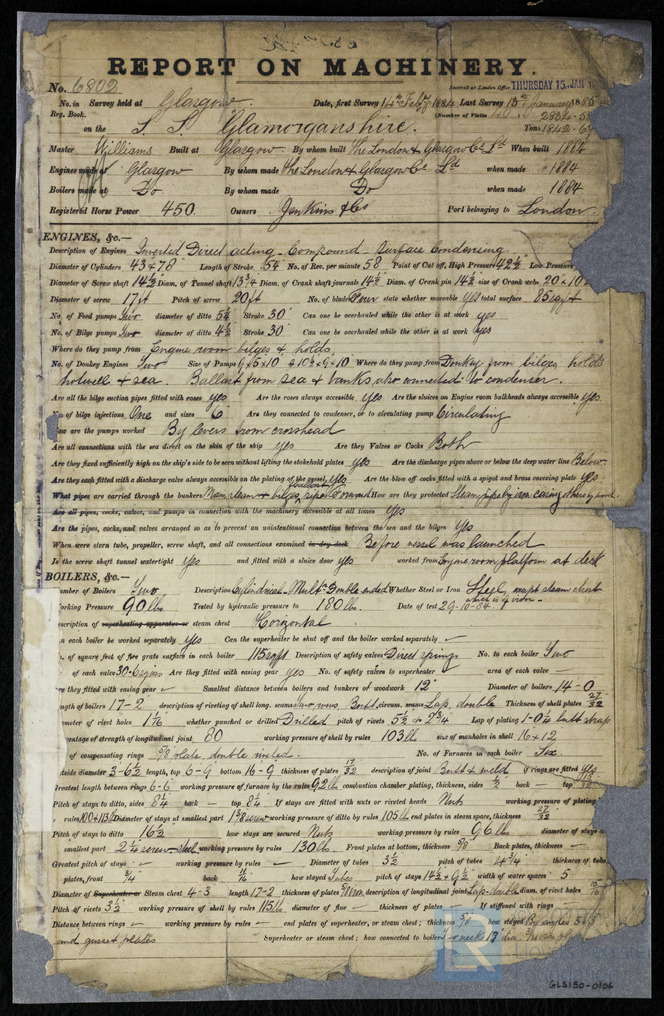 REPORT ON MACHINERY.
No. 6802 Received at London Office THURSDAY 15 JAN
No. in Survey held at Glasgow. Date, first Survey 14th Feby 1884 Last Survey 13th January 1885
Reg. Book. (Number of Visits
on the S. S. Glamorganshire. Tons
Master Williams Built at Glasgow By whom built The London & Glasgow Co Ltd When built 1884
Engines made at Glasgow By whom made The London & Glasgow Co Ltd when made 1884
Boilers made at Do By whom made Do when made 1884
Registered Horse Power 450 Owners Jenkins & Co Port belonging to London
ENGINES, &c.—
Description of Engines Inverted Direct acting - Compound - Surface Condensing
Diameter of Cylinders 43 & 78 Length of Stroke 54 No. of Rev. per minute 58 Point of Cut off, High Pressure 42½ Low Pressure
Diameter of Screw shaft 14½ Diam. of Tunnel shaft 13¾ Diam. of Crank shaft journals 14½ Diam. of Crank pin 14½ size of Crank webs 20 × 10
Diameter of screw 17ft Pitch of screw 20ft No. of blades Four state whether moveable yes total surface 85 sqft
No. of Feed pumps Two diameter of ditto Stroke 30" Can one be overhauled while the other is at work yes
No. of Bilge pumps Two diameter of ditto 4½ Stroke 30" Can one be overhauled while the other is at work yes
Where do they pump from Engine room bilges & holds,
No. of Donkey Engines Two Size of Pumps Where do they pump from Donkey from bilges, holds
hotwell & sea. Ballast from sea & tanks also connected to condenser.
Are all the bilge suction pipes fitted with roses yes Are the roses always accessible yes Are the sluices on Engine room bulkheads always accessible yes
No. of bilge injections One and sizes 6" Are they connected to condenser, or to circulating pump Circulating
How are the pumps worked By levers from crosshead
Are all connections with the sea direct on the skin of the ship yes Are they Valves or Cocks Both
Are they fixed sufficiently high on the ship's side to be seen without lifting the stokehold plates yes Are the discharge pipes above or below the deep water line Below
Are they each fitted with a discharge valve always accessible on the plating of the vessel yes Are the blow off cocks fitted with a spigot and brass covering plate yes
What pipes are carried through the bunkers Main steam & bilge How are they protected Steam pipe by iron casing
Are all pipes, cocks, valves, and pumps in connection with the machinery accessible at all times yes
Are the pipes, cocks, and valves arranged so as to prevent an unintentional connection between the sea and the bilges yes
When were stern tube, propeller, screw shaft, and all connections examined in dry dock Before vessel was launched
Is the screw shaft tunnel watertight yes and fitted with a sluice door yes worked from Engine room platform at deck
BOILERS, &c.—
Number of Boilers Two Description Cylindrical - Mult - Double ended Whether Steel or Iron Steel, except steam chest
which is of iron -
Working Pressure 90 lbs Tested by hydraulic pressure to 180 lbs. Date of test 29.10.84.
Description of superheating apparatus or steam chest Horizontal
Can each boiler be worked separately yes Can the superheater be shut off and the boiler worked separately ✓
No. of square feet of fire grate surface in each boiler 115 sqft Description of safety valves Direct spring No. to each boiler Two
of each valve Are they fitted with easing gear yes No. of safety valves to superheater ✓ area of each valve
Are they fitted with easing gear ✓ Smallest distance between boilers and bunkers or woodwork 12" Diameter of boilers 14-0
Length of boilers 17-2 description of riveting of shell long. seams Butt circum. seams Lap, double Thickness of shell plates 27/32
Diameter of rivet holes whether punched or drilled Drilled pitch of rivets Lap of plating
Percentage of strength of longitudinal joint 80 working pressure of shell by rules 103 lb size of manholes in shell 16 × 12
of compensating rings ⅝ plate double riveted. No. of Furnaces in each boiler Six
Outside diameter length, top 6-9 bottom 16-9 thickness of plates description of joint Butt & weld if rings are fitted yes
Greatest length between rings 6-6 working pressure of furnace by the rules 92 lb combustion chamber plating, thickness, sides ½ back — top
Pitch of stays to ditto, sides 8¼ back — top 8¼ If stays are fitted with nuts or riveted heads Nuts working pressure of plating
rules Diameter of stays at smallest part working pressure of ditto by rules 105 lb end plates in steam space, thickness
Pitch of stays to ditto 16½ how stays are secured Nuts working pressure by rules 96 lbs diameter of stays at
smallest part working pressure by rules 130 lb. Front plates at bottom, thickness Back plates, thickness
Greatest pitch of stays ✓ working pressure by rules ✓ Diameter of tubes 3½ pitch of tubes thickness of tube
plates, front ¾ back 11/16 how stayed Tubes pitch of stays width of water spaces 5
Diameter of Superheater or Steam chest 4-3 length 17-2 thickness of plates description of longitudinal joint Lap-double diam. of rivet holes
Pitch of rivets 3½ working pressure of shell by rules 115 lb diameter of flue — thickness of plates — If stiffened with rings —
Distance between rings — working pressure by rules — end plates of superheater, or steam chest; thickness how stayed By angles
and gusset plates Superheater or steam chest; how connected to boiler
GLS130-0106